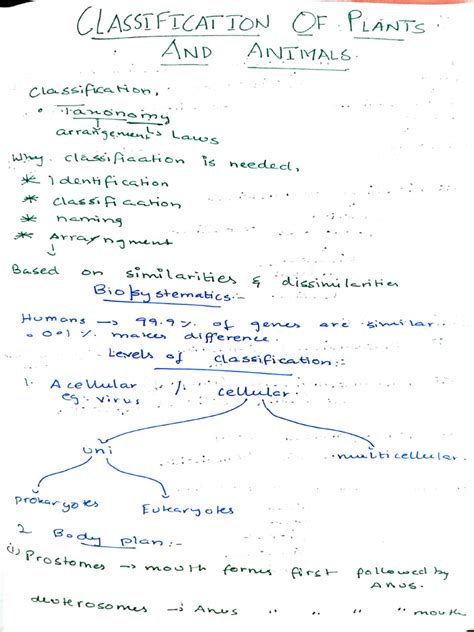 CLASSIFICATION OF PLANTS
AND ANIMALS.
Classification,
• Taxonomy
arrangement Laws
Why classification is needed,
* identification
* classification
* naming
* Arrayngment
Based on similarities & dissimilarities
Biosystematics:-
Humans → 99.9% of genes are similar.
0.01% makes difference.
Levels of classification:-
1. Acellular % cellular
eg: virus
uni
multicellular.
prokaryotes
Eukaryotes
2 Body plan:-
(i) Prostomes → mouth formes first followed by
Anus.
deuterosomes → Anus " " " mouth